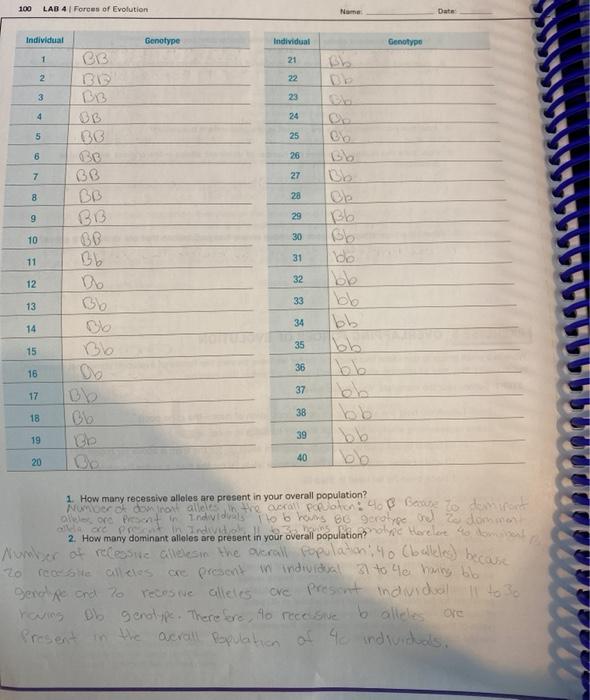 100 LAB 4 | Forces of Evolution Name: Date:
Individual Genotype Individual Genotype
1 BB 21 Bb
2 BB 22 Bb
3 BB 23 Bb
4 BB 24 Bb
5 BB 25 Bb
6 BB 26 Bb
7 BB 27 Bb
8 BB 28 Bb
9 BB 29 Bb
10 BB 30 Bb
11 Bb 31 bb
12 Bb 32 bb
13 Bb 33 bb
14 Bb 34 bb
15 Bb 35 bb
16 Bb 36 bb
17 Bb 37 bb
18 Bb 38 bb
19 Bb 39 bb
20 Bb 40 bb
1. How many recessive alleles are present in your overall population?
Number of dominant alleles in the overall population: 40 B Because 20 dominant
alleles are present in Individuals 1 to having BB genotype and 20 dominant
allele are present in Individuals 11 to 30 having Bb genotype therefore 40 dominant
2. How many dominant alleles are present in your overall population?
Number of recessive alleles in the overall population: 40 (b alleles) because
20 recessive alleles are present in individual 31 to 40 having bb
genotype and 20 recesive alleles are present individual 11 to 30
having Bb genotype. Therefore, 40 recessive b alleles are
Present in the overall Population of 40 individuals.